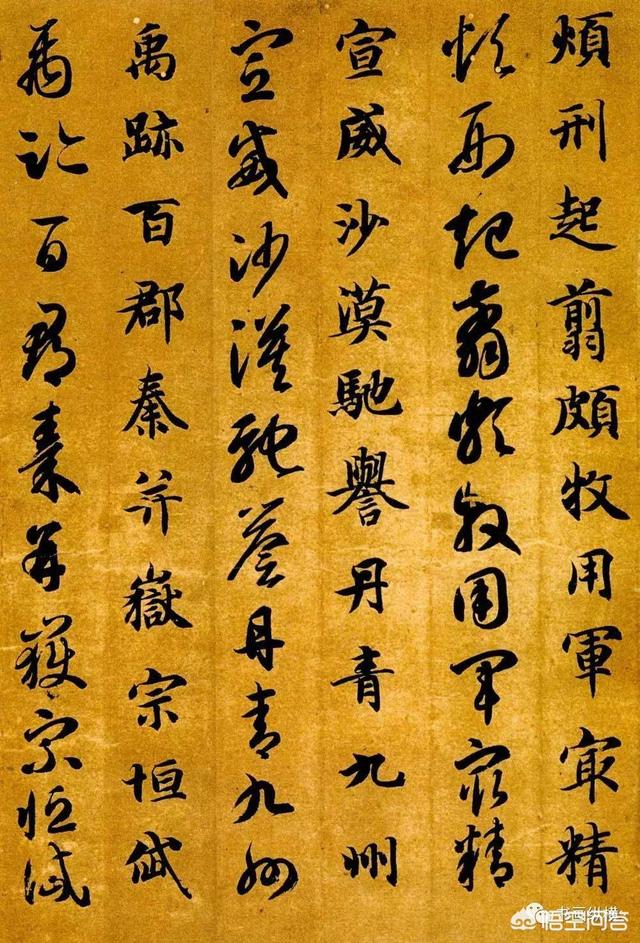 煩刑起翦頗牧用軍㝡精
煩刑起翦頗牧用軍㝡精
宣威沙漠馳譽丹青九州
宣威沙漠馳譽丹青九州
禹跡百郡秦并嶽宗恒岱
禹跡百郡秦并嶽宗恒岱
书画纵横
悟空问答